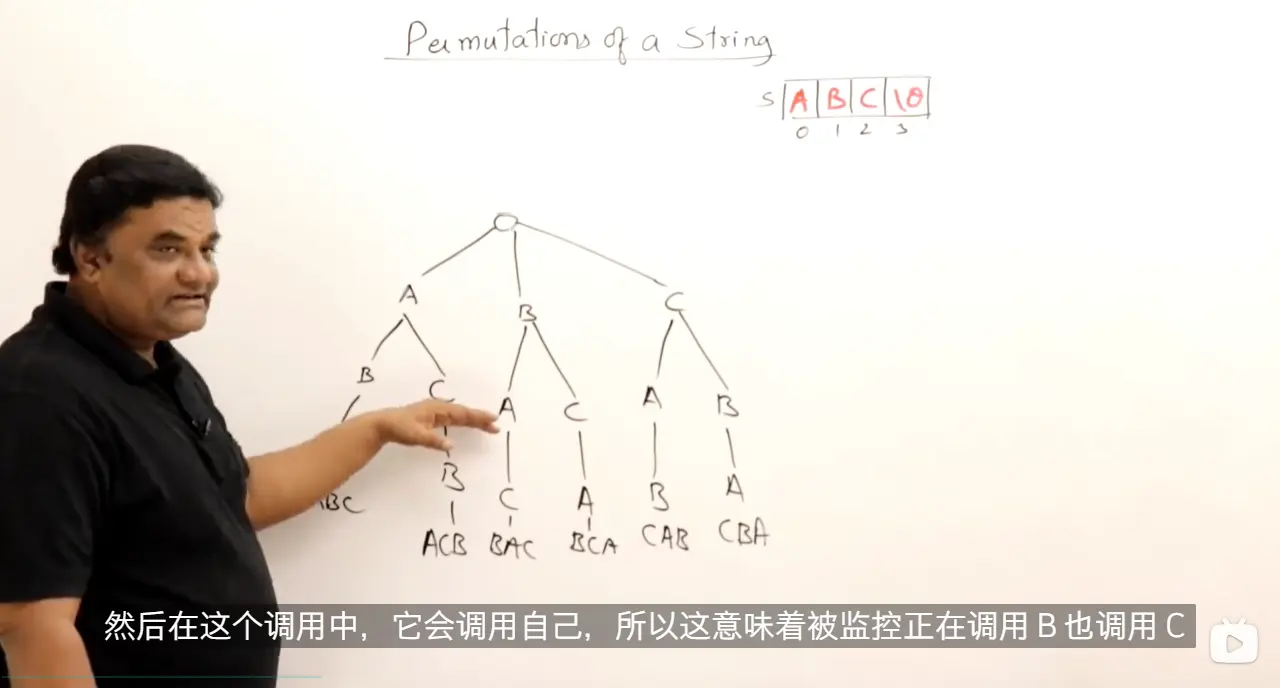 Permutations of a String
S A B C \0
0 1 2 3
A B C
B C A C A B
B C A B A
ABC ACB BAC BCA CAB CBA
然后在这个调用中, 它会调用自己, 所以这意味着被监控正在调用 B 也调用 C